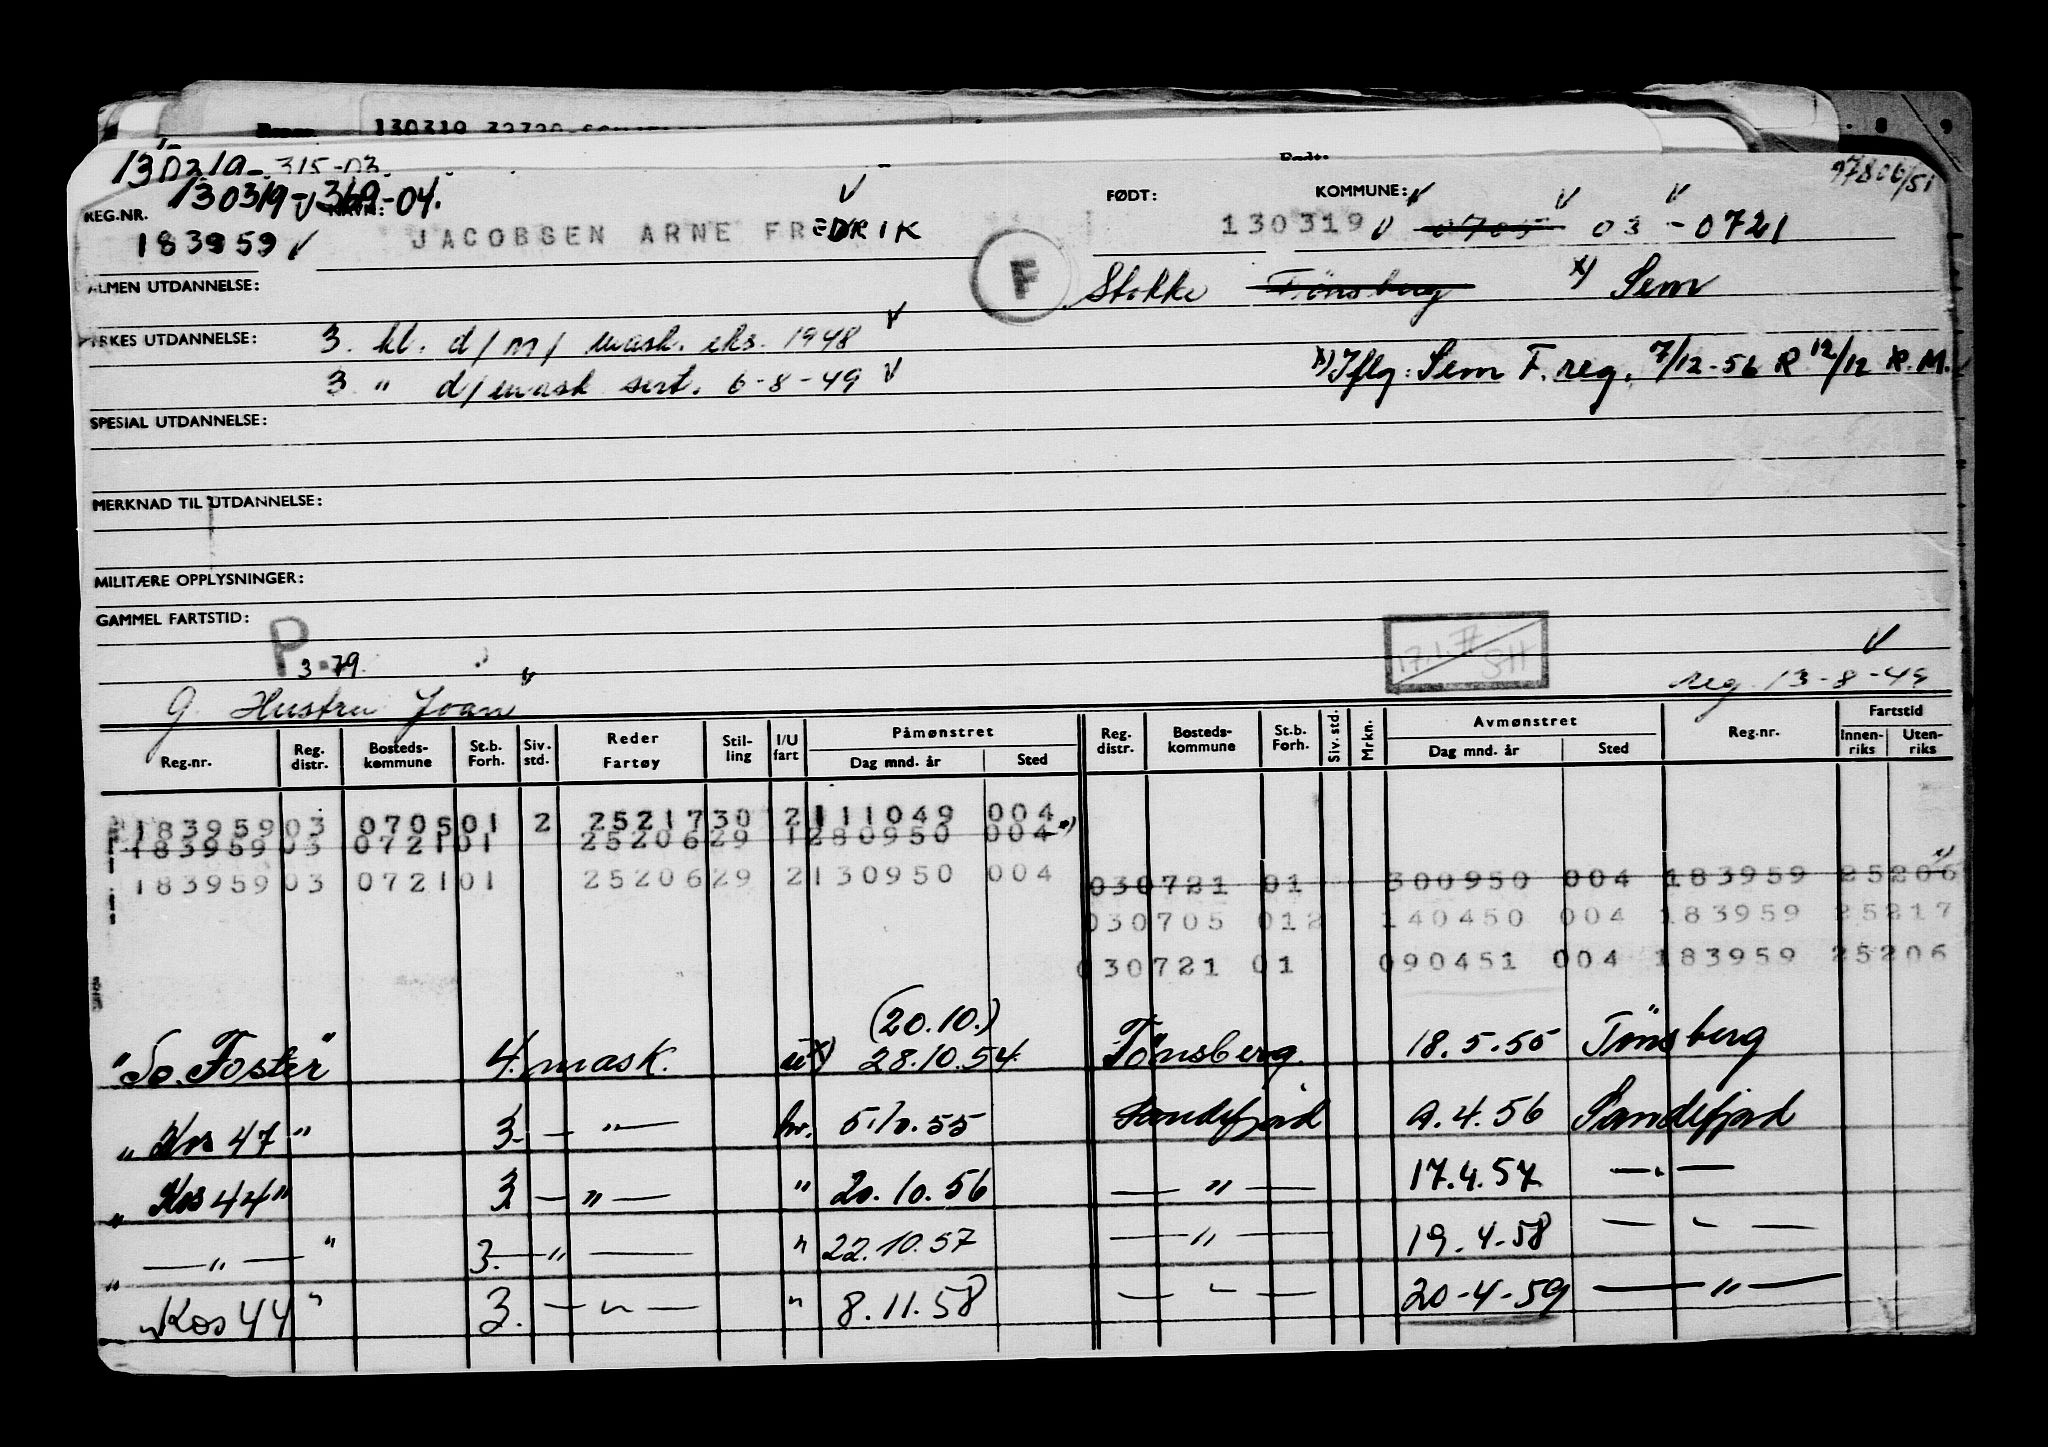 130319
130319-315-03.
130319-369-04.
97806/51
REG.NR.
NAVN:
FØDT:
KOMMUNE:
183959
JACOBSEN ARNE FREDRIK
130319
0705 03 - 0721
F
ALMEN UTDANNELSE:
Stokke Tönsberg x) Sem
YRKES UTDANNELSE:
3. kl. d/m/ mask. eks. 1948
3 " d/mask sert. 6-8-49
x) Iflg: Sem F.reg. 7/12-56 R 12/12 R.M.
SPESIAL UTDANNELSE:
MERKNAD TIL UTDANNELSE:
MILITÆRE OPPLYSNINGER:
GAMMEL FARTSTID:
P.
3-79.
17.1.77
SH
reg. 13-8-49
g. Hustru Joan "
Reg.nr. Reg. distr. Bosteds-kommune St.b. Forh. Siv. std. Reder Fartøy Stil-ling I/U fart Påmønstret Dag mnd. år Sted Reg. distr. Bosteds-kommune St.b. Forh. Siv. std. Mrkn. Avmønstret Dag mnd. år Sted Reg.nr. Fartstid Innen-riks Uten-riks
183959 03 0705 01 2 25217 30 2 111049 004
183959 03 0721 01 25206 29 1 280950 004 x)
183959 03 0721 01 25206 29 2 130950 004
03 0721 01 300950 004 183959 25206 x)
03 0705 01 2 140450 004 183959 25217
03 0721 01 090451 004 183959 25206
(20.10.)
"So. Foster" 4. mask. u x) 28.10.54 Tönsberg. 18.5.55 Tönsberg
"Kos 47" 3. — " — hv. 5.10.55 Sandefjord 9.4.56 Sandefjord
"Kos 44" 3 — " — " 20.10.56 — " — 17.4.57 — " —
" — " — " 3. — " — " 22.10.57 — " — 19.4.58 — " —
"Kos 44" 3. — " — " 8.11.58 — " — 20-4-59 — " —